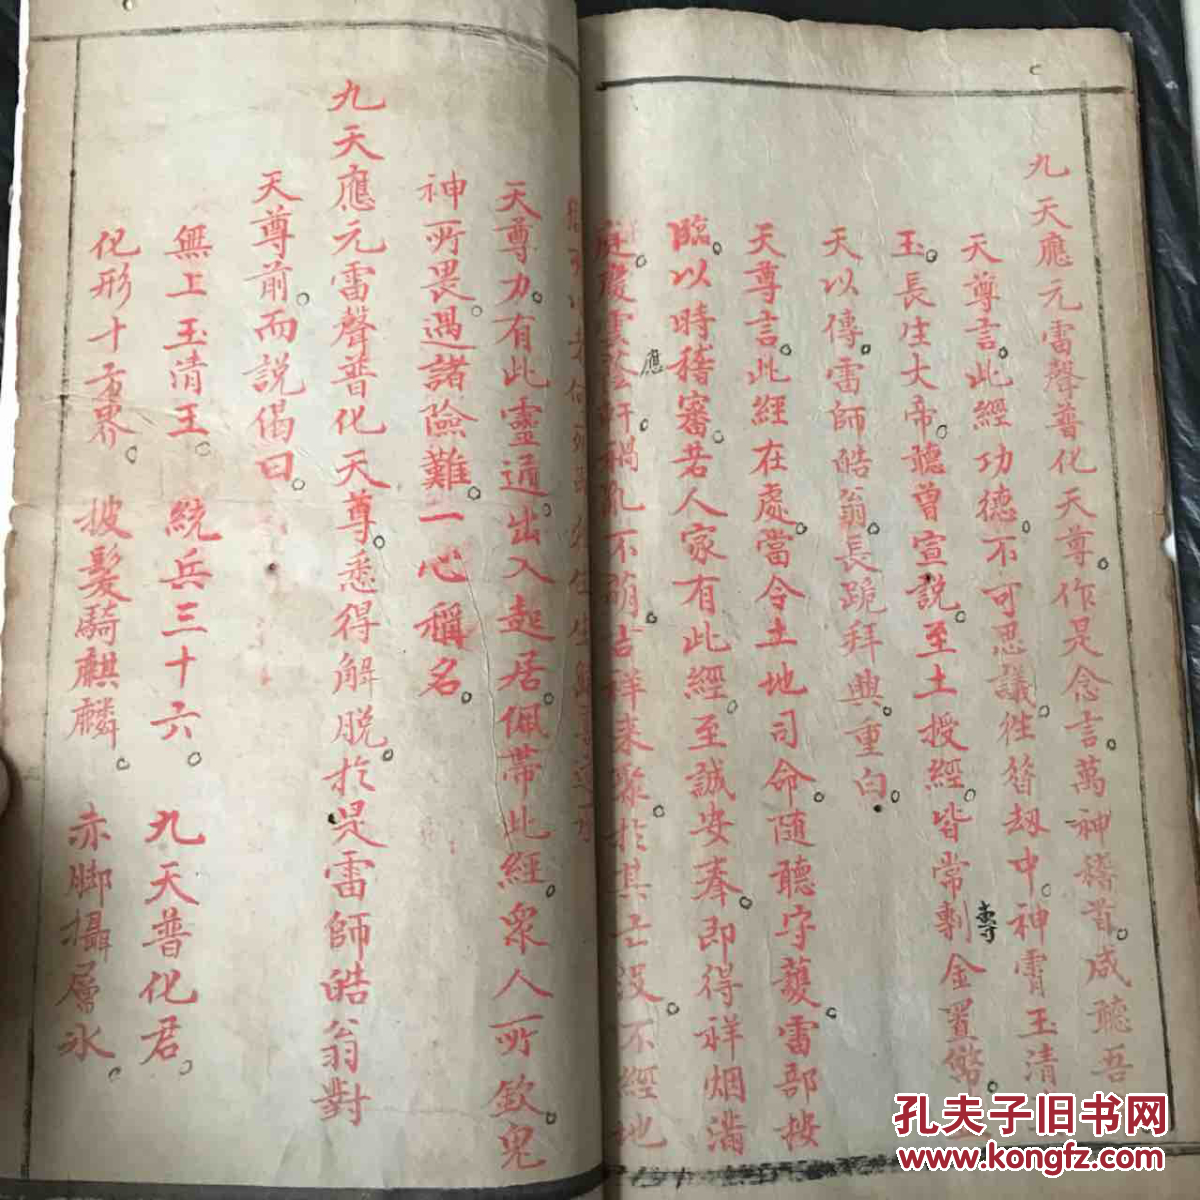 九天應元雷聲普化天尊作是念言萬神稽首咸聽吾
天尊言此經功德不可思議徃昝刼中神霄玉清
玉長生大帝聽曾宣說至土授經皆常剩金置幣
夀
天以傳雷師皓翁長跪拜興重白
天尊言此經在處當令土地司命随聽守護雷部按
臨以時稽審若人家有此經至誠安奉即得祥烟滿
庭慶雲
應
禍乱不萌吉祥来聚於其亡没不經地
生生
天尊力有此靈通出入起居佩帶此經衆人所欽鬼
神所畏遇諸險難一心稱名
九天應元雷聲普化天尊悉得解脱於是雷師皓翁對
天尊前而説偈曰
無上玉清王 統兵三十六 九天普化君
化形十方界 披髮騎麒麟 赤脚攝層氷
孔夫子旧书网
www.kongfz.com